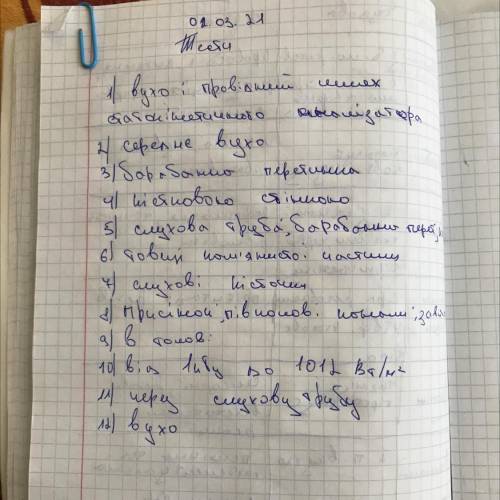 02.03.21
Тести
1) вухо і провідний шлях
статокінетичного аналізатора
2) середнє вухо
3) барабанна перетинка
4) кістковою стінкою
5) слухова труба, барабанна
6) товщі кам'янистої частини
7) слухові кісточки
8) Присінок, півколові канали,
9) в голові
10) від до 1012 Вт/м²
11) через слухову трубу
12) вухо